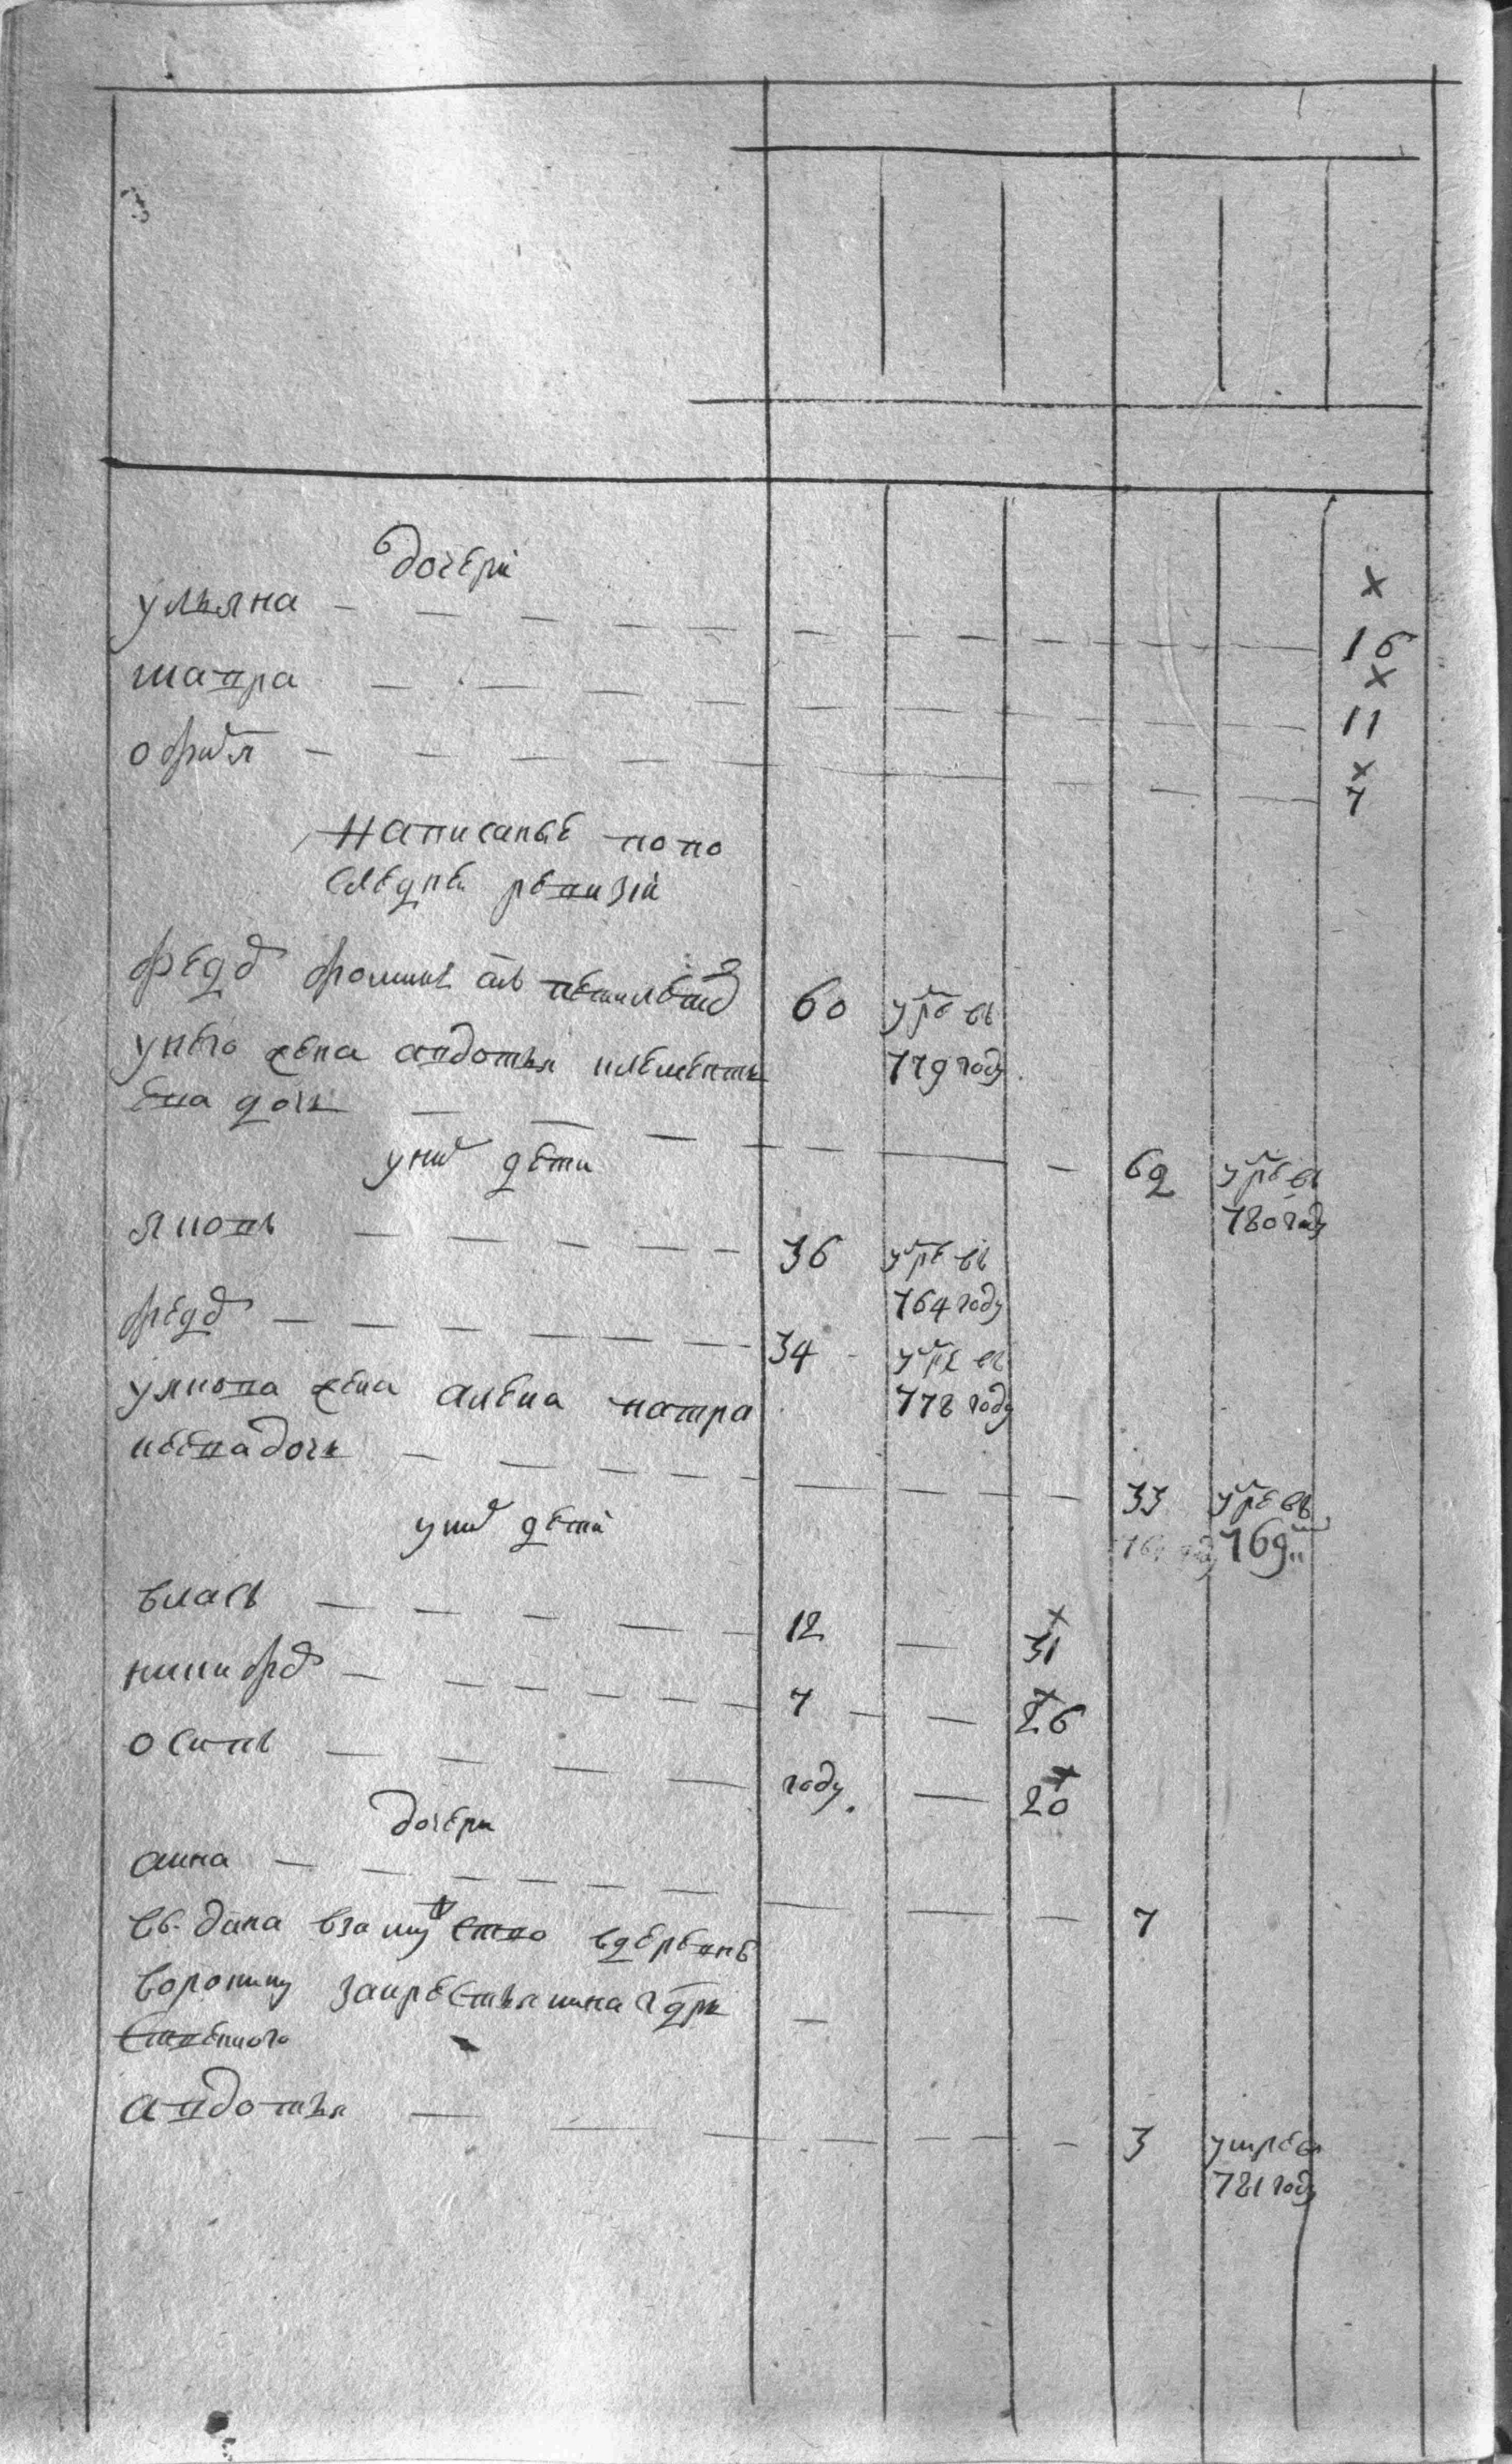 дочери
ульяна — — — 16
мавра — — — 11
офимя — — — 7
Написаные по по
следней ревизий
федор фомин сын 60 умре въ
779 году
у него жена авдотья клементь
ева дочь — — — 62 умре въ
780 году
у них дети
яковъ — — — 36 умре въ
764 году
федор — — — 34 умре въ
778 году
у якова жена алена патра
кеева дочь — — — 33 умре въ
769
у них дети
власъ — — — 12 — 31
никифор — — — 7 — 26
осипъ — — — году — 20
дочери
анна — — — 7
выдана в замужество в деревне
воронину за крестьянина гдрь
ственного
авдотья — — — 3 умре въ
781 году